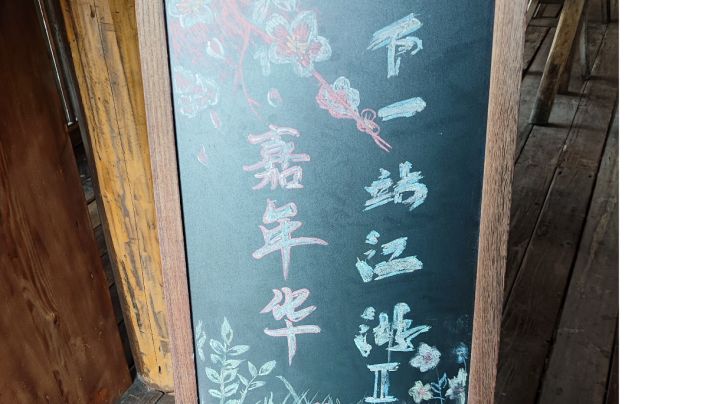 下一站江湖Ⅱ
嘉年华